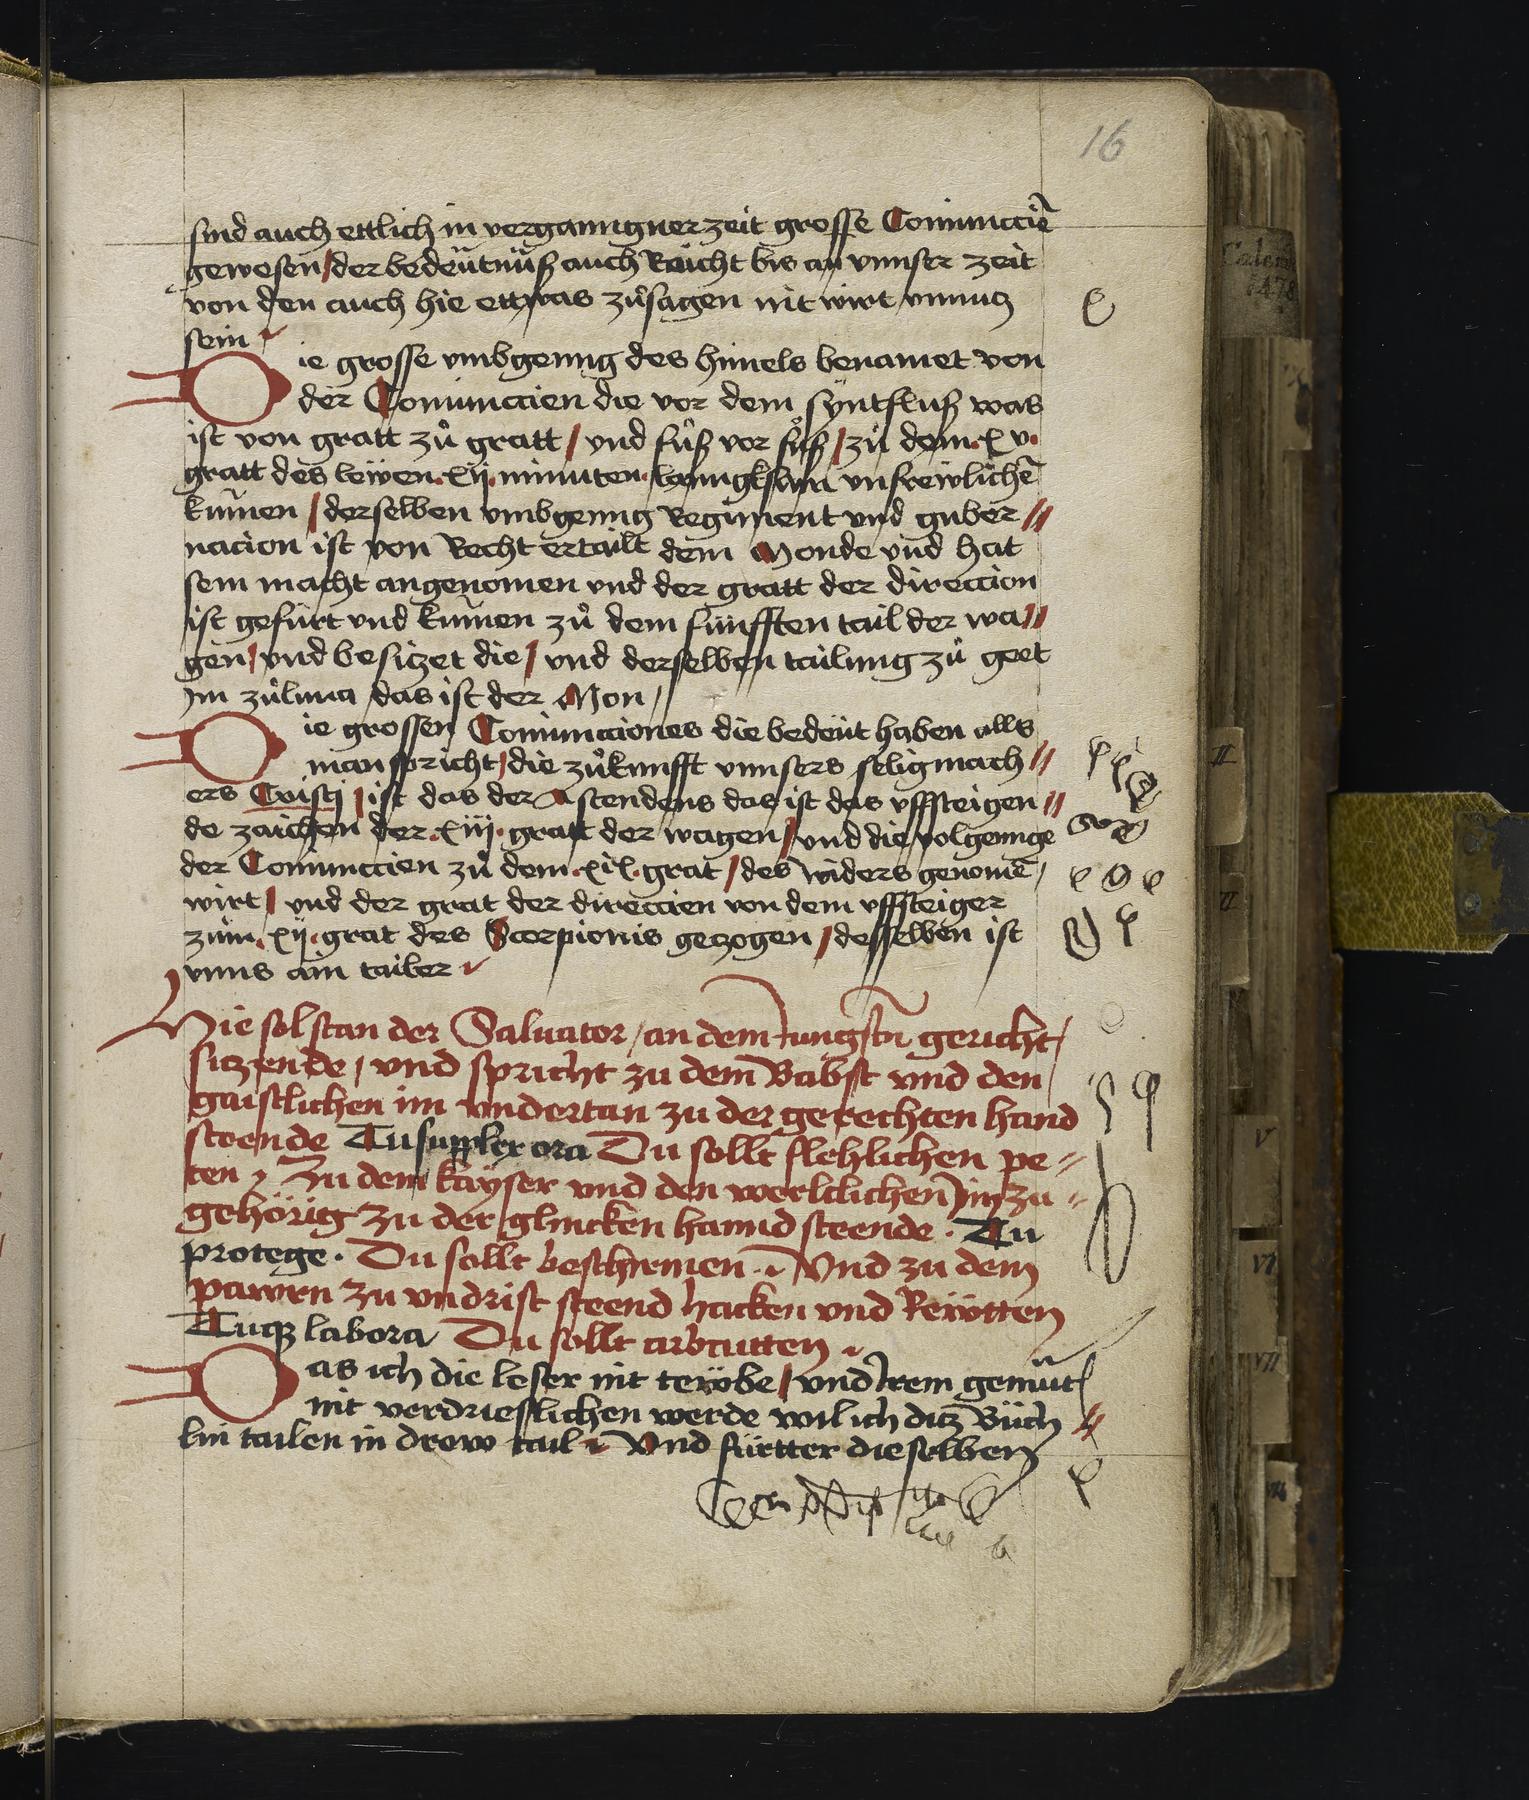 16
sind auch ettlich in verganngner zeit grosse Coniunccīe
gewesen / der bedeütnüß auch Raicht bis an vnnser zeit
von den auch hie ettwas zůsagen nit wirt vnnutz
sein
Die grosse vmbgenng des himels benamet von
der Coniunccien die vor dem syntfluß was
ist von gratt zů gratt / vnd fůß vor fůß / zů dem .xv.
gratt des lewen .xij. minuten lanngksam vnfrewlichē
kumen / derselben vmbgenng Regiment vnd guber //
nacion ist von Recht ertailt dem Monde vnd hat
sein macht angenomen vnd der gratt der direccion
ist gefürt vnd kumen zů dem fünfften tail der wa //
gen / vnd besitzet die / vnd derselben tailung zů geet
Im zůluna das ist der Mon /
Die grossen Coniuncciones die bedeüt haben alls
man spricht / die zůkunfft vnnsers seligmach //
ers Cristj / ist das der Ascendens das ist das vffsteigen //
de zaichen der .xiij. gratt der wagen / vnd die volgennge
der Coniunccien zů dem .xix. grat / des widers genomē /
wirt / vnd der grat der direccien von dem vffsteiger
zům .xij. grat des Scorpionis gezogen / desselben ist
vnns ain tailer
Hie sol stan der Saluator / an dem Iungsten gericht /
sitzende / vnd spricht zu dem Babst vnd den
gaistlichen im vndertan zu der gerechten hand
steende Tu supplex ora Du sollt flehlichen pe //
ten / Zu dem kayser vnd den werltlichen Im zu //
gehörig zu der glincken hannd steende . Tu
protege . Du sollt beschirmen . Vnd zu dem
pawrn zu vndrist steend hacken vnd Rewtten
Tuqz labora Du sollt arbaitten
Das ich die leser nit tewbe / vnd Irem gemüt
nit verdrieslichen werde wil ich ditz Büch //
lin tailen in drew tail Vnd fürtter dieselben
II
V
VI
VII